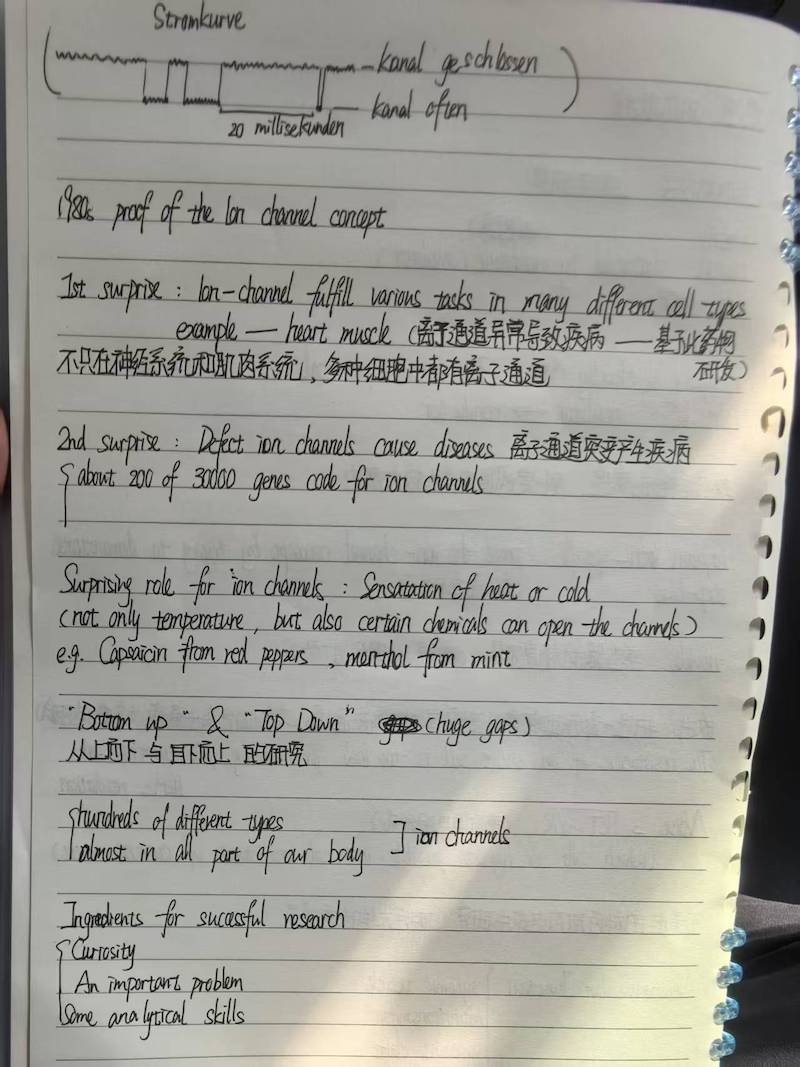 Stromkurve
kanal geschlossen
kanal offen
20 millisekunden
1980s proof of the Ion channel concept
1st surprise : Ion-channel fulfill various tasks in many different cell types
example — heart muscle (离子通道异常导致疾病 —— 基于此药物研发)
不只在神经系统和肌肉系统，多种细胞中都有离子通道
2nd surprise : Defect ion channels cause diseases 离子通道突变产生疾病
about 200 of 30000 genes code for ion channels
Surprising role for ion channels : Sensatation of heat or cold
(not only temperature, but also certain chemicals can open the channels)
e.g. Capsaicin from red peppers, menthol from mint
"Bottom up" & "Top Down" (huge gaps)
从上而下 与 自下而上 的研究
hundreds of different types
almost in all part of our body ] ion channels
Ingredients for sucessful research
Curiosity
An important problem
Some analytical skills